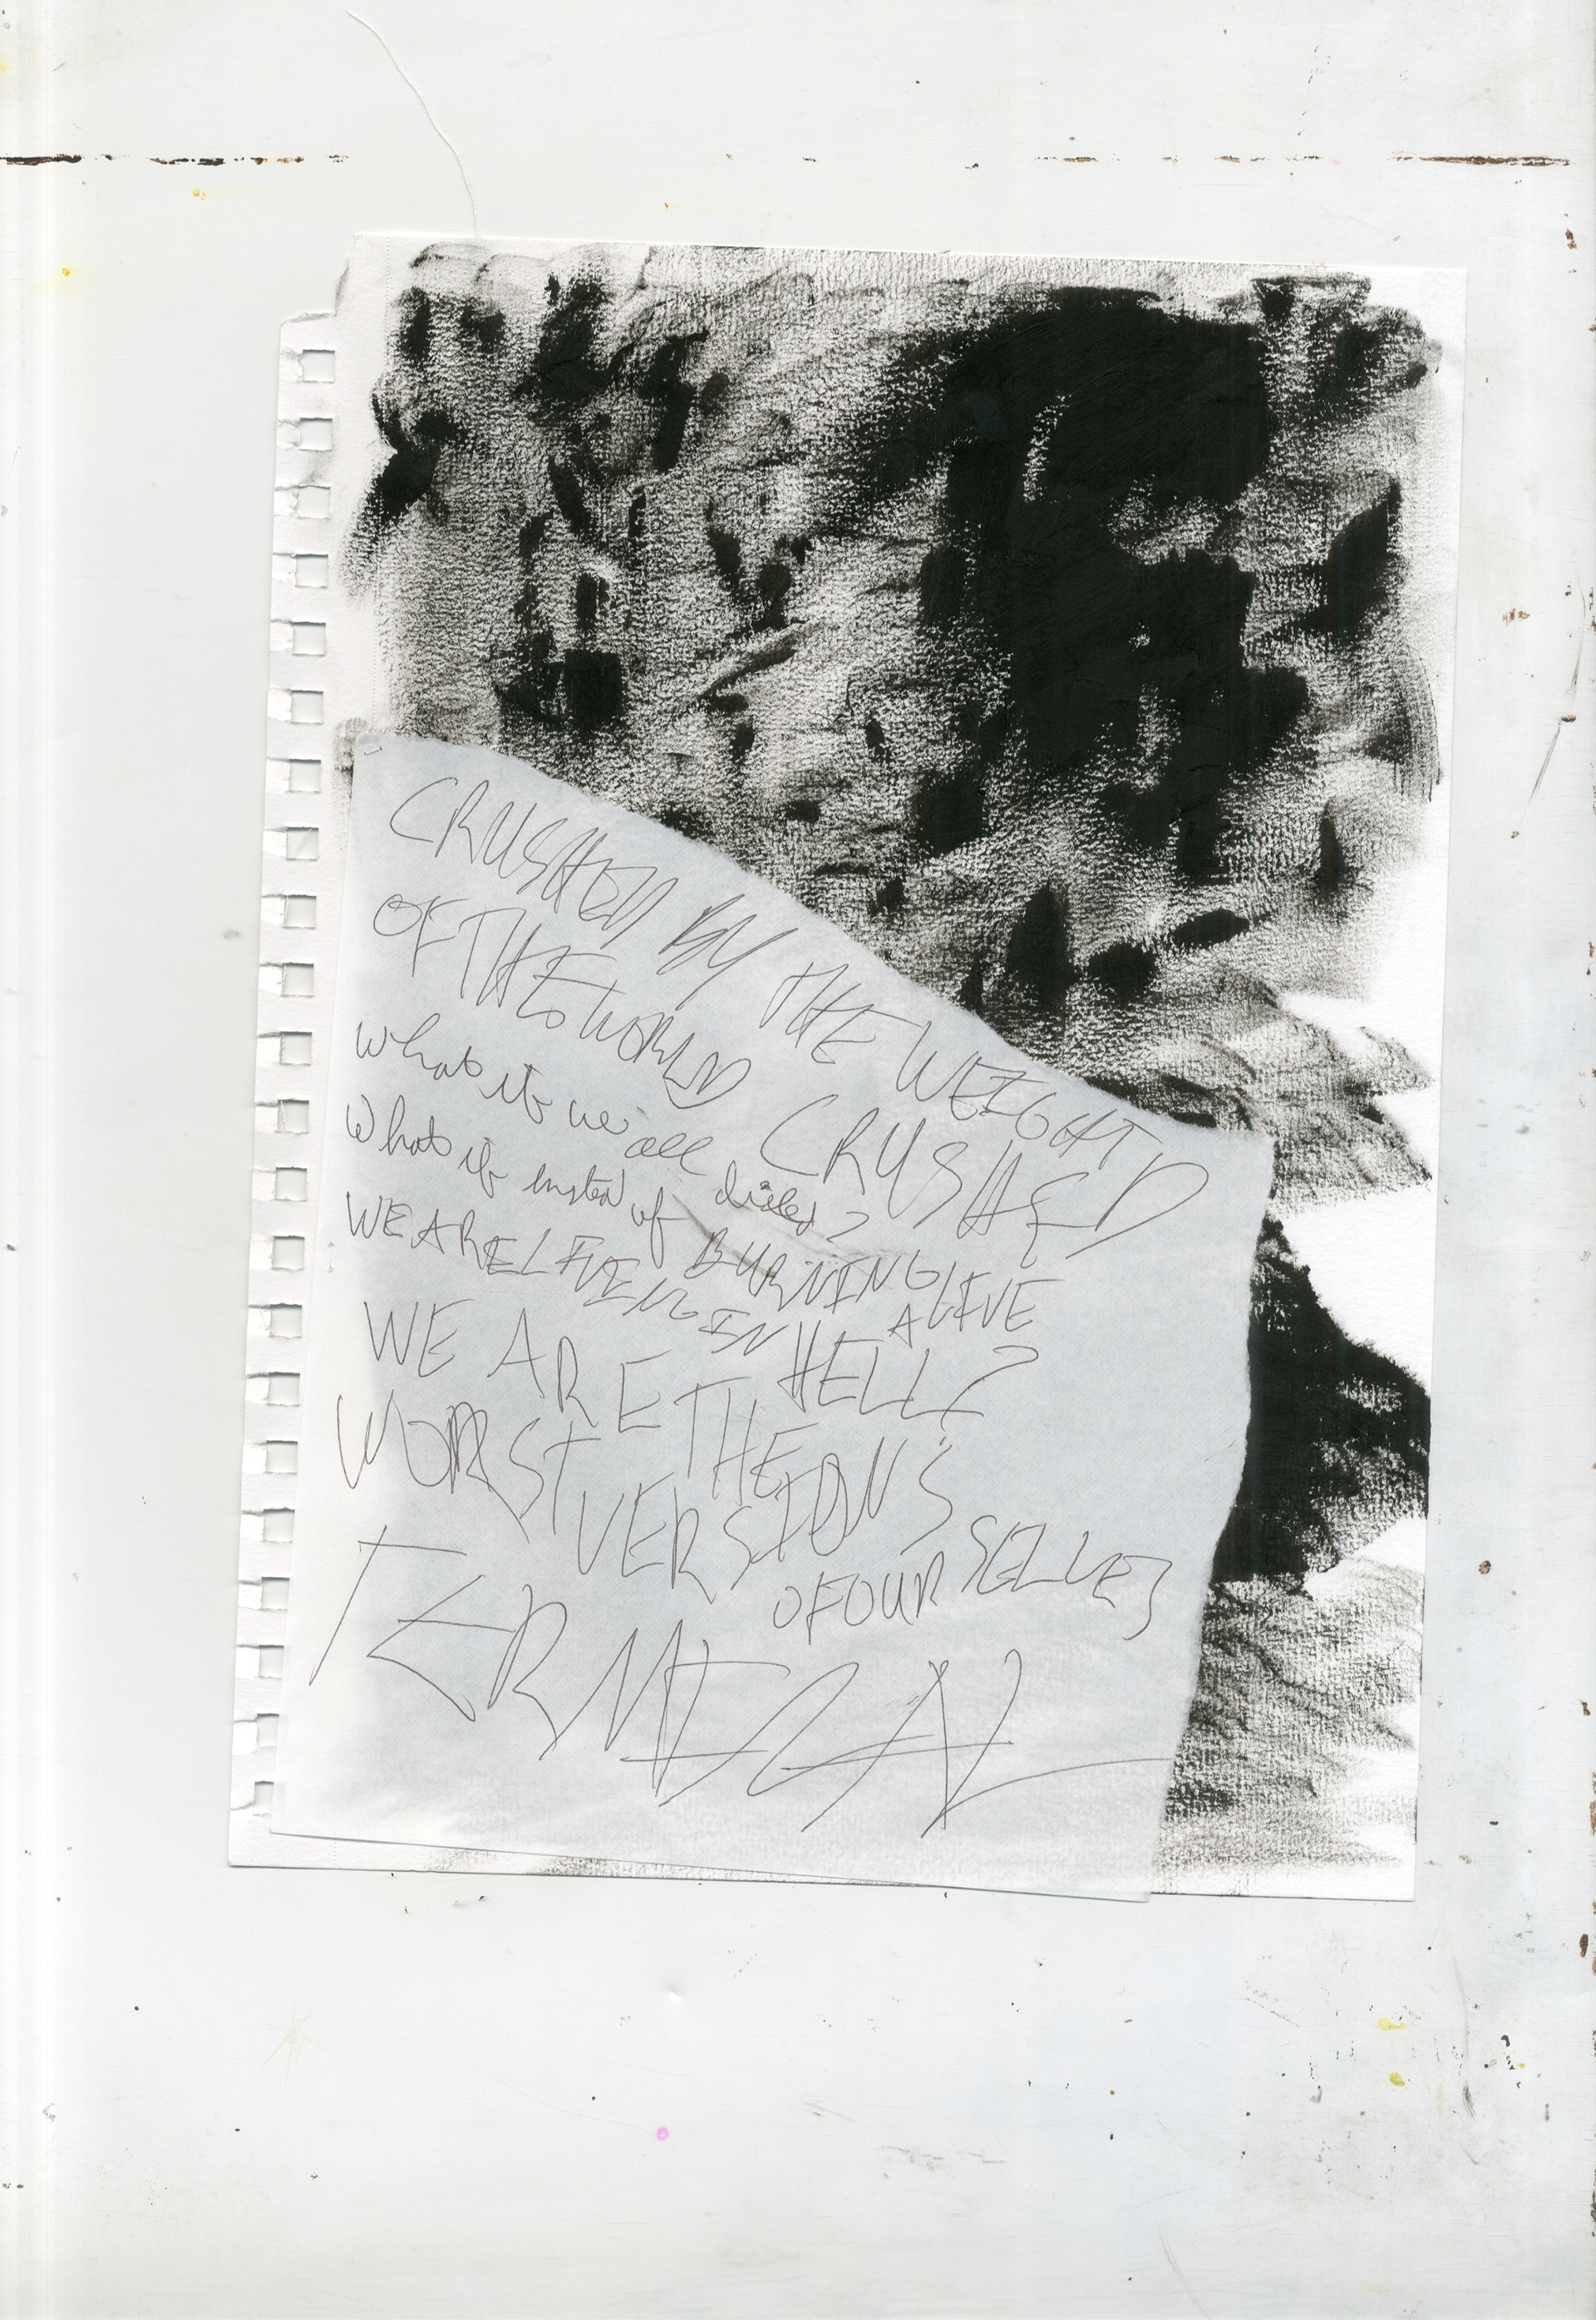 CRUSHED BY THE WEIGHT
OF THE WORLD CRUSHED
What if we all died?
What if insted of BURNING ALIVE
WE ARE LIVEING IN HELL?
WE ARE THE
WORST VERSIONS
OF OUR SELVES
TERMICAL